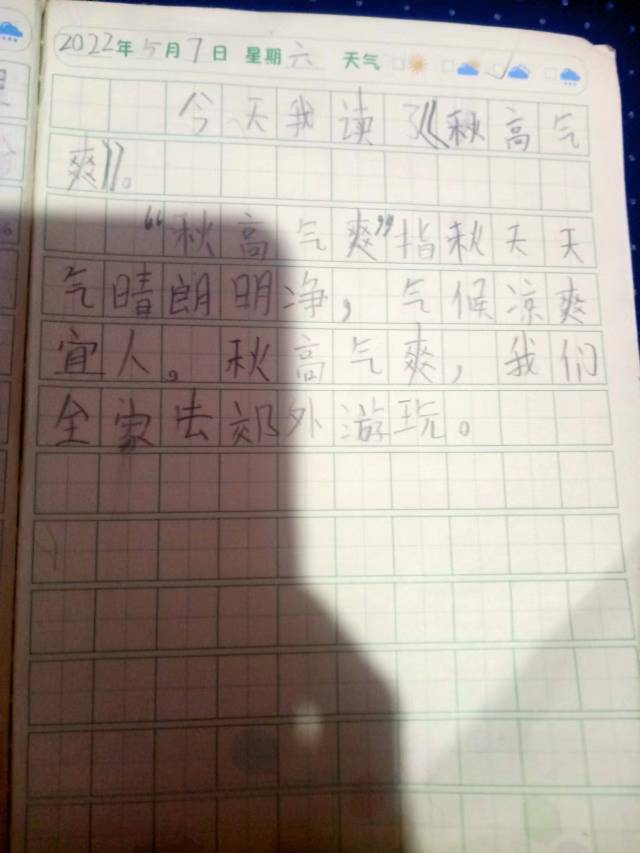 2022年5月7日 星期六 天气
今天我读了《秋高气
爽》。
“秋高气爽”指秋天天
气晴朗明净,气候凉爽
宜人。秋高气爽,我们
全家去郊外游玩。